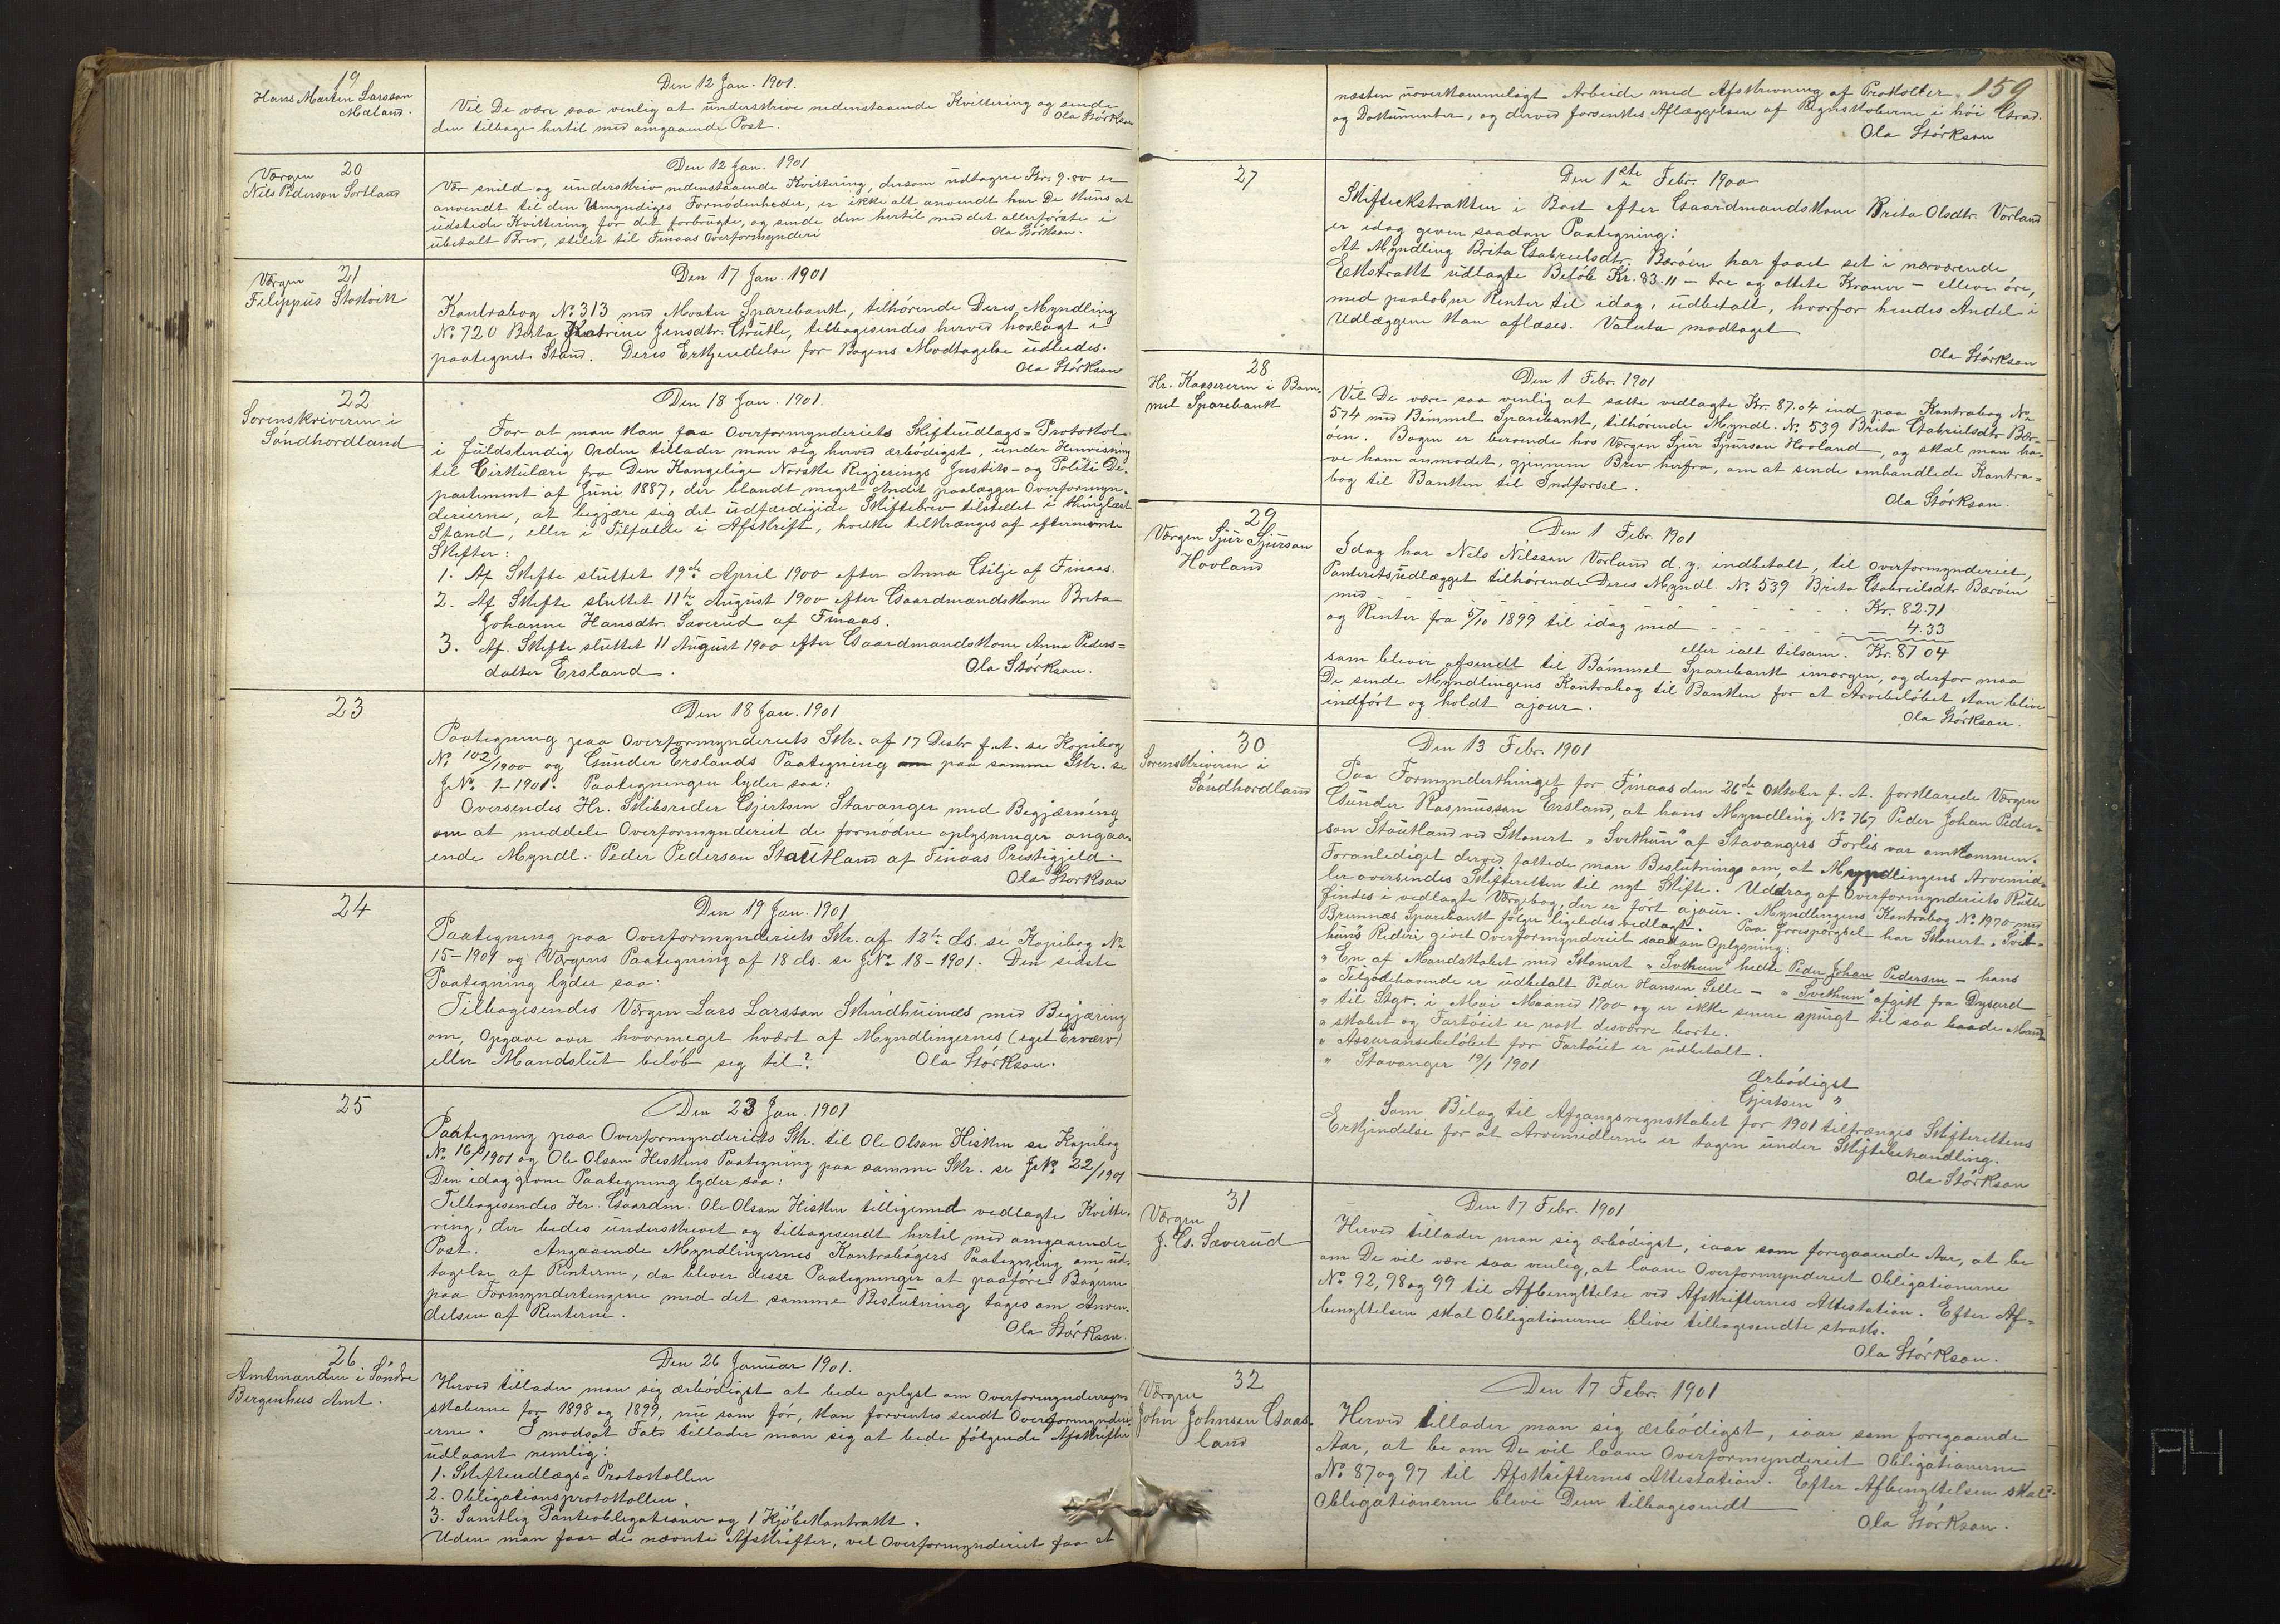 19
Hans Martin Larsson
Mæland.
Den 12 Jan. 1901.
Vil De være saa venlig at underskrive nedenstaaende Kvittering og sende
den tilbage hertil med omgaaende Post.
Ola Størkson
20
Værgen
Nils Pederson Sortland
Den 12 Jan. 1901
Vær snild og underskriv nedenstaaende Kvittering, dersom udtagne Kr. 9.80 er
anvendt til den Umyndiges Fornødenheder, er ikke alt anvendt har De kuns at
udstede Kvittering for det forbrugte, og sende den hertil med det allerførste i
ubetalt Brev, stilet til Finaas Overformynderi
Ola Størkson.
21
Værgen
Filippus Stokvik
Den 17 Jan. 1901
Kontrabog No. 313 med Moster Sparebank, tilhørende Deres Myndling
No. 720 Berta Katrine Jensdtr. Grutle, tilbagesendes herved hoslagt i
paategnet Stand. Deres Erkjendelse for Bogens Modtagelse udbedes.
Ola Størkson
22
Sorenskriveren i
Søndhordland
Den 18 Jan. 1901.
For at man kan faa Overformynderiets Skifteudlægs=Protokol
i fuldstendig Orden tillader man sig herved ærbødigst, under Henvisning
til Cirkulære fra Den Kongelige Norske Regjerings Justits- og Politi De-
partement af Juni 1887, der blandt meget Andet paalægger Overformyn-
derierne, at begjære sig det udfærdigede Skiftebrev tilstellet i thinglæst
Stand, eller i Tilfælde i Afskrift, hvilke tiltrænges af efternævnte
Skifter:
1. Af Skifte sluttet 19de April 1900 efter Anna Gilje af Finaas.
2. Af Skifte sluttet 11te August 1900 efter Gaardmandskone Brita
Johanne Hansdtr. Sæverud af Finaas.
3. Af. Skifte sluttet 11 August 1900 efter Gaardmandskone Anna Peders=
datter Ersland.
Ola Størkson.
23
Den 18 Jan. 1901
Paategning paa Overformynderiets Skr. af 17 Desbr f. A. se Kopibog
No. 102/1900 og Gunder Erslands Paategning paa samme Skr. se
J.No. 1-1901. Paategningen lyder saa:
Oversendes Hr. Skibsreder Gjertsen Stavanger med Begjærning
om at meddele Overformynderiet de fornødne oplysninger angaa-
ende Myndl. Peder Pederson Stautland af Finaas Prestegjeld.
Ola Størkson
24
Den 19 Jan. 1901
Paategning paa Overformynderiets Skr. af 12te ds. se Kopibog No.
15-1901 og Værgens Paategning af 18 ds. se J.No. 18-1901. Den sidste
Paategning lyder saa:
Tilbagesendes Værgen Lars Larsson Skindhuinæs med Begjæring
om, Opgave over hvormeget hvært af Myndlingernes (eget Erværv)
eller Mandslut beløb sig til?
Ola Størkson.
25
Den 23 Jan. 1901
Paategning paa Overformynderiets Skr. til Ole Olson Hisken se Kopibog
No. 16/1901 og Ole Olson Hiskens Paategning paa samme Skr. se J.No. 22/1901
Den idag givne Paategning lyder saa:
Tilbagesendes Hr. Gaardm. Ole Olson Hisken tilligemed vedlagte Kvitte-
ring, der bedes underskrevet og tilbagesendt hertil med omgaaende
Post. Angaaende Myndlingernes Kontrabøgers Paategning om ud-
tagelse af Renterne, da bliver disse Paategninger at paaføre Bøgerne
paa Formyndertingene med det samme Beslutning tages om Anven-
delsen af Renterne.
Ola Størkson.
26
Amtmanden i Søndre
Bergenhus Amt.
Den 26 Januar 1901.
Herved tillader man sig ærbødigst at bede oplyst om Overformynderregn-
skaberne for 1898 og 1899, nu som før, kan forventes sendt Overformynderi-
erne. I modsat Fald tillader man sig at bede følgende Afskrifter
udlaant nemlig:
1. Skifteudlægs=Protokollen
2. Obligationsprotokollen.
3. Samtlig Panteobligationer og 1 Kjøbekontrakt.
Uden man faar de nævnte Afskrifter, vil Overformynderiet faa et
159
næsten uoverkommeligt Arbeide med Afskrivning af Protokoller
og Dokumenter, og derved forsenkes Aflæggelsen af Regnskaberne i høi Grad.
Ola Størkson
27
Den 1ste Febr. 1900
Skifteekstrakten i Boet efter Gaardmandskone Brita Olsdtr. Vorland
er idag given saadan Paategning:
At Myndling Brita Gabrielsdtr. Børøen har faaet set i nærværende
Ekstrakt udlagte Beløb Kr. 83.11 - tre og ottite Kroner - elleve øre,
med paaløbne Renter til idag, udbetalt, hvorfor hendes Andel i
Udlæggene kan aflæses. Valuta modtaget
Ola Størkson
28
Hr. Kassereren i Bøm-
mel Sparebank
Den 1 Febr. 1901
Vil De være saa venlig at sætte vedlagte Kr. 87.04 ind paa Kontrabog No.
574 med Bømmel Sparebank, tilhørende Myndl. No. 539 Brita Gabrielsdtr Bør-
øen. Bogen er beroende hos Værgen Sjur Sjurson Hovland, og skal man ha-
ve ham anmodet, gjennem Brev herfra, om at sende omhandlede Kontra=
bog til Banken til Indførsel.
Ola Størkson.
29
Værgen Sjur Sjurson
Hovland
Den 1 Febr. 1901
Idag har Nels Nilsson Vorland d. y. indbetalt, til Overformynderiet,
Panteretsudlægget tilhørende Deres Myndl. No. 539 Brita Gabrielsdtr Børøen
med - - - - - - Kr. 82.71
og Renter fra 5/10 1899 til idag med - - - - 4.33
eller ialt tilsam. Kr. 87 04
som bliver afsendt til Bømmel Sparebank imorgen, og derfor maa
De sende Myndlingens Kontrabog til Banken for at Arvebeløbet kan blive
indført og holdt ajour.
Ola Størkson.
30
Sorenskriveren i
Søndhordland
Den 13 Febr. 1901
Paa Formynderthinget for Finaas den 26de Oktober f. A. forklarede Værgen
Gunder Rasmusson Ersland, at hans Myndling No. 767 Peder Johan Peder-
son Stautland ved Skonert "Svithun" af Stavangers Forlis var omkommen.
Foranlediget derved fattede man Beslutning om, at Myndlingens Arvemid-
ler oversendes Skifteretten til nyt Skifte. Uddrag af Overformynderiets Rulle
findes i vedlagte Værgebog, der er ført ajour. Myndlingens Kontrabog No. 1970 med
Bremnæs Sparebank følger ligeledes vedlagt. Paa Forespørgsel har Skonert "Svit-
hun's Rederi givet Overformynderiet saadan Oplysning:
" En af Mandskabet med Skonert "Svithun" hedte Peder Johan Pedersen - hans
" Tilgodehavende er udbetalt Peder Hansen Selle - "Svithun" afgik fra Dysard
" til Stgr. i Mai Maaned 1900 og er ikke senere spurgt til saa baade Mand-
" skabet og Fartøiet er nok desværre borte.
" Assuransebeløbet for Fartøiet er udbetalt.
" Stavanger 19/1 1901
Ærbødigst
Gjertsen "
Som Bilag til Afgangsregnskabet for 1901 tiltrænges Skifterettens
Erkjendelse for at Arvemidlerne er tagen under Skiftebehandling.
Ola Størkson
31
Værgen
J. G. Sæverud
Den 17 Febr. 1901
Herved tillader man sig ærbødigst, iaar som foregaaende Aar, at be
om De vil være saa venlig, at laane Overformynderiet Obligationerne
No. 92, 98 og 99 til Afbenyttelse ved Afskrifternes Attestation. Efter Af=
benyttelsen skal Obligationerne blive tilbagesendte straks.
Ola Størkson.
32
Værgen
John Johnsen Gaas-
land
Den 17 Febr. 1901
Herved tillader man sig ærbødigst, iaar som foregaaende
Aar, at be om De vil laane Overformynderiet Obligationerne
No. 87 og 97 til Afskrifternes Attestation. Efter Afbenyttelsen skal
Obligationerne blive Dem tilbagesendt
Ola Størkson.